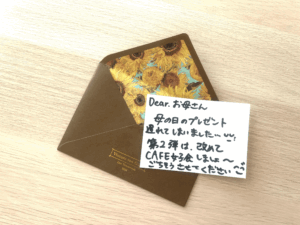 Dear. お母さん
母の日のプレゼント
遅れてしまいました…
第2弾は、改めて
CAFE女子会しましょ〜
ごちそうさせてください